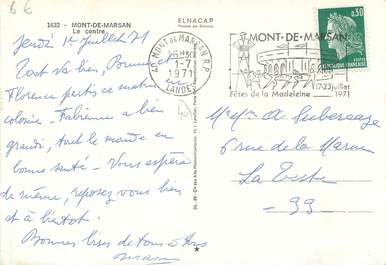 6€
1632 - MONT-DE-MARSAN
Le centre
ELNACAP
Jeudi 1er Juillet 71
Tout va bien, Brunnet
Florence partis ce matin
colonie - Fabienne a bien
grandi, tout le monde en
bonne santé - Vous espère
de même, reposez vous bien
et à bientôt.
Bonnes bises de tous à tous
40 MONT-DE-MARSAN R.P.
1-7
1971
LANDES
MONT-DE-MARSAN
17-23 juillet
Fêtes de la Madeleine 1971
0,30
REPUBLIQUE FRANCAISE
Mr Mme A. Lubersage
6 rue de la Marne
La Teste
- 33 -